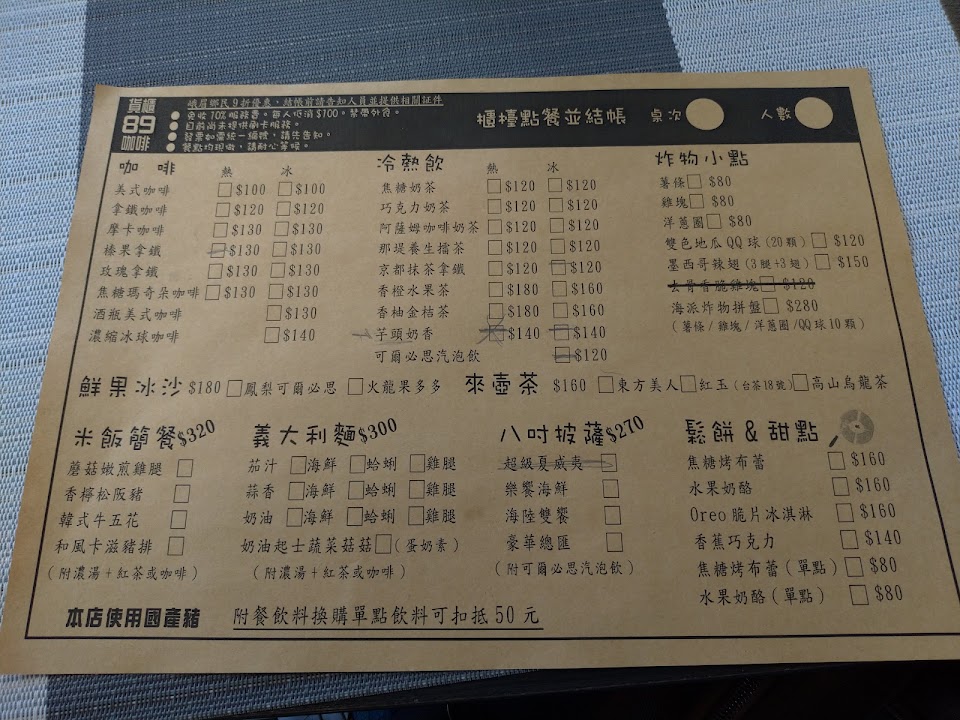 貨櫃
89
咖啡
峨眉鄉民9折優惠，結帳前請告知人員並提供相關証件
● 免收10%服務費。每人低消$100。禁帶外食。
● 目前尚未提供刷卡服務。
● 發票如需統一編號，請先告知。
● 餐點均現做，請耐心等候。
櫃檯點餐並結帳 桌次 人數
咖啡 熱 冰
美式咖啡 □$100 □$100
拿鐵咖啡 □$120 □$120
摩卡咖啡 □$130 □$130
榛果拿鐵 □$130 □$130
玫瑰拿鐵 □$130 □$130
焦糖瑪奇朵咖啡 □$130 □$130
酒瓶美式咖啡 □$130
濃縮冰球咖啡 □$140
冷熱飲 熱 冰
焦糖奶茶 □$120 □$120
巧克力奶茶 □$120 □$120
阿薩姆咖啡奶茶 □$120 □$120
那堤養生擂茶 □$120 □$120
京都抹茶拿鐵 □$120 □$120
香橙水果茶 □$180 □$160
香柚金桔茶 □$180 □$160
芋頭奶香 □$140 □$140
可爾必思汽泡飲 □$120
炸物小點
薯條□ $80
雞塊□ $80
洋蔥圈□ $80
雙色地瓜QQ球(20顆) □ $120
墨西哥辣翅(3腿+3翅) □ $150
去骨香脆雞塊□ $120
海派炸物拼盤□ $280
(薯條/雞塊/洋蔥圈/QQ球10顆)
鮮果冰沙 $180 □鳳梨可爾必思 □火龍果多多
來壺茶 $160 □東方美人□紅玉(台茶18號)□高山烏龍茶
米飯簡餐$320
蘑菇嫩煎雞腿 □
香檸松阪豬 □
韓式牛五花 □
和風卡滋豬排 □
(附濃湯+紅茶或咖啡)
義大利麵$300
茄汁 □海鮮 □蛤蜊 □雞腿
蒜香 □海鮮 □蛤蜊 □雞腿
奶油 □海鮮 □蛤蜊 □雞腿
奶油起士蔬菜菇菇□(蛋奶素)
(附濃湯+紅茶或咖啡)
八吋披薩$270
超級夏威夷 □
樂饗海鮮 □
海陸雙饗 □
豪華總匯 □
(附可爾必思汽泡飲)
鬆餅&甜點
焦糖烤布蕾 □ $160
水果奶酪 □ $160
Oreo脆片冰淇淋 □ $160
香蕉巧克力 □ $140
焦糖烤布蕾(單點) □ $80
水果奶酪(單點) □ $80
本店使用國產豬 附餐飲料換購單點飲料可扣抵50元